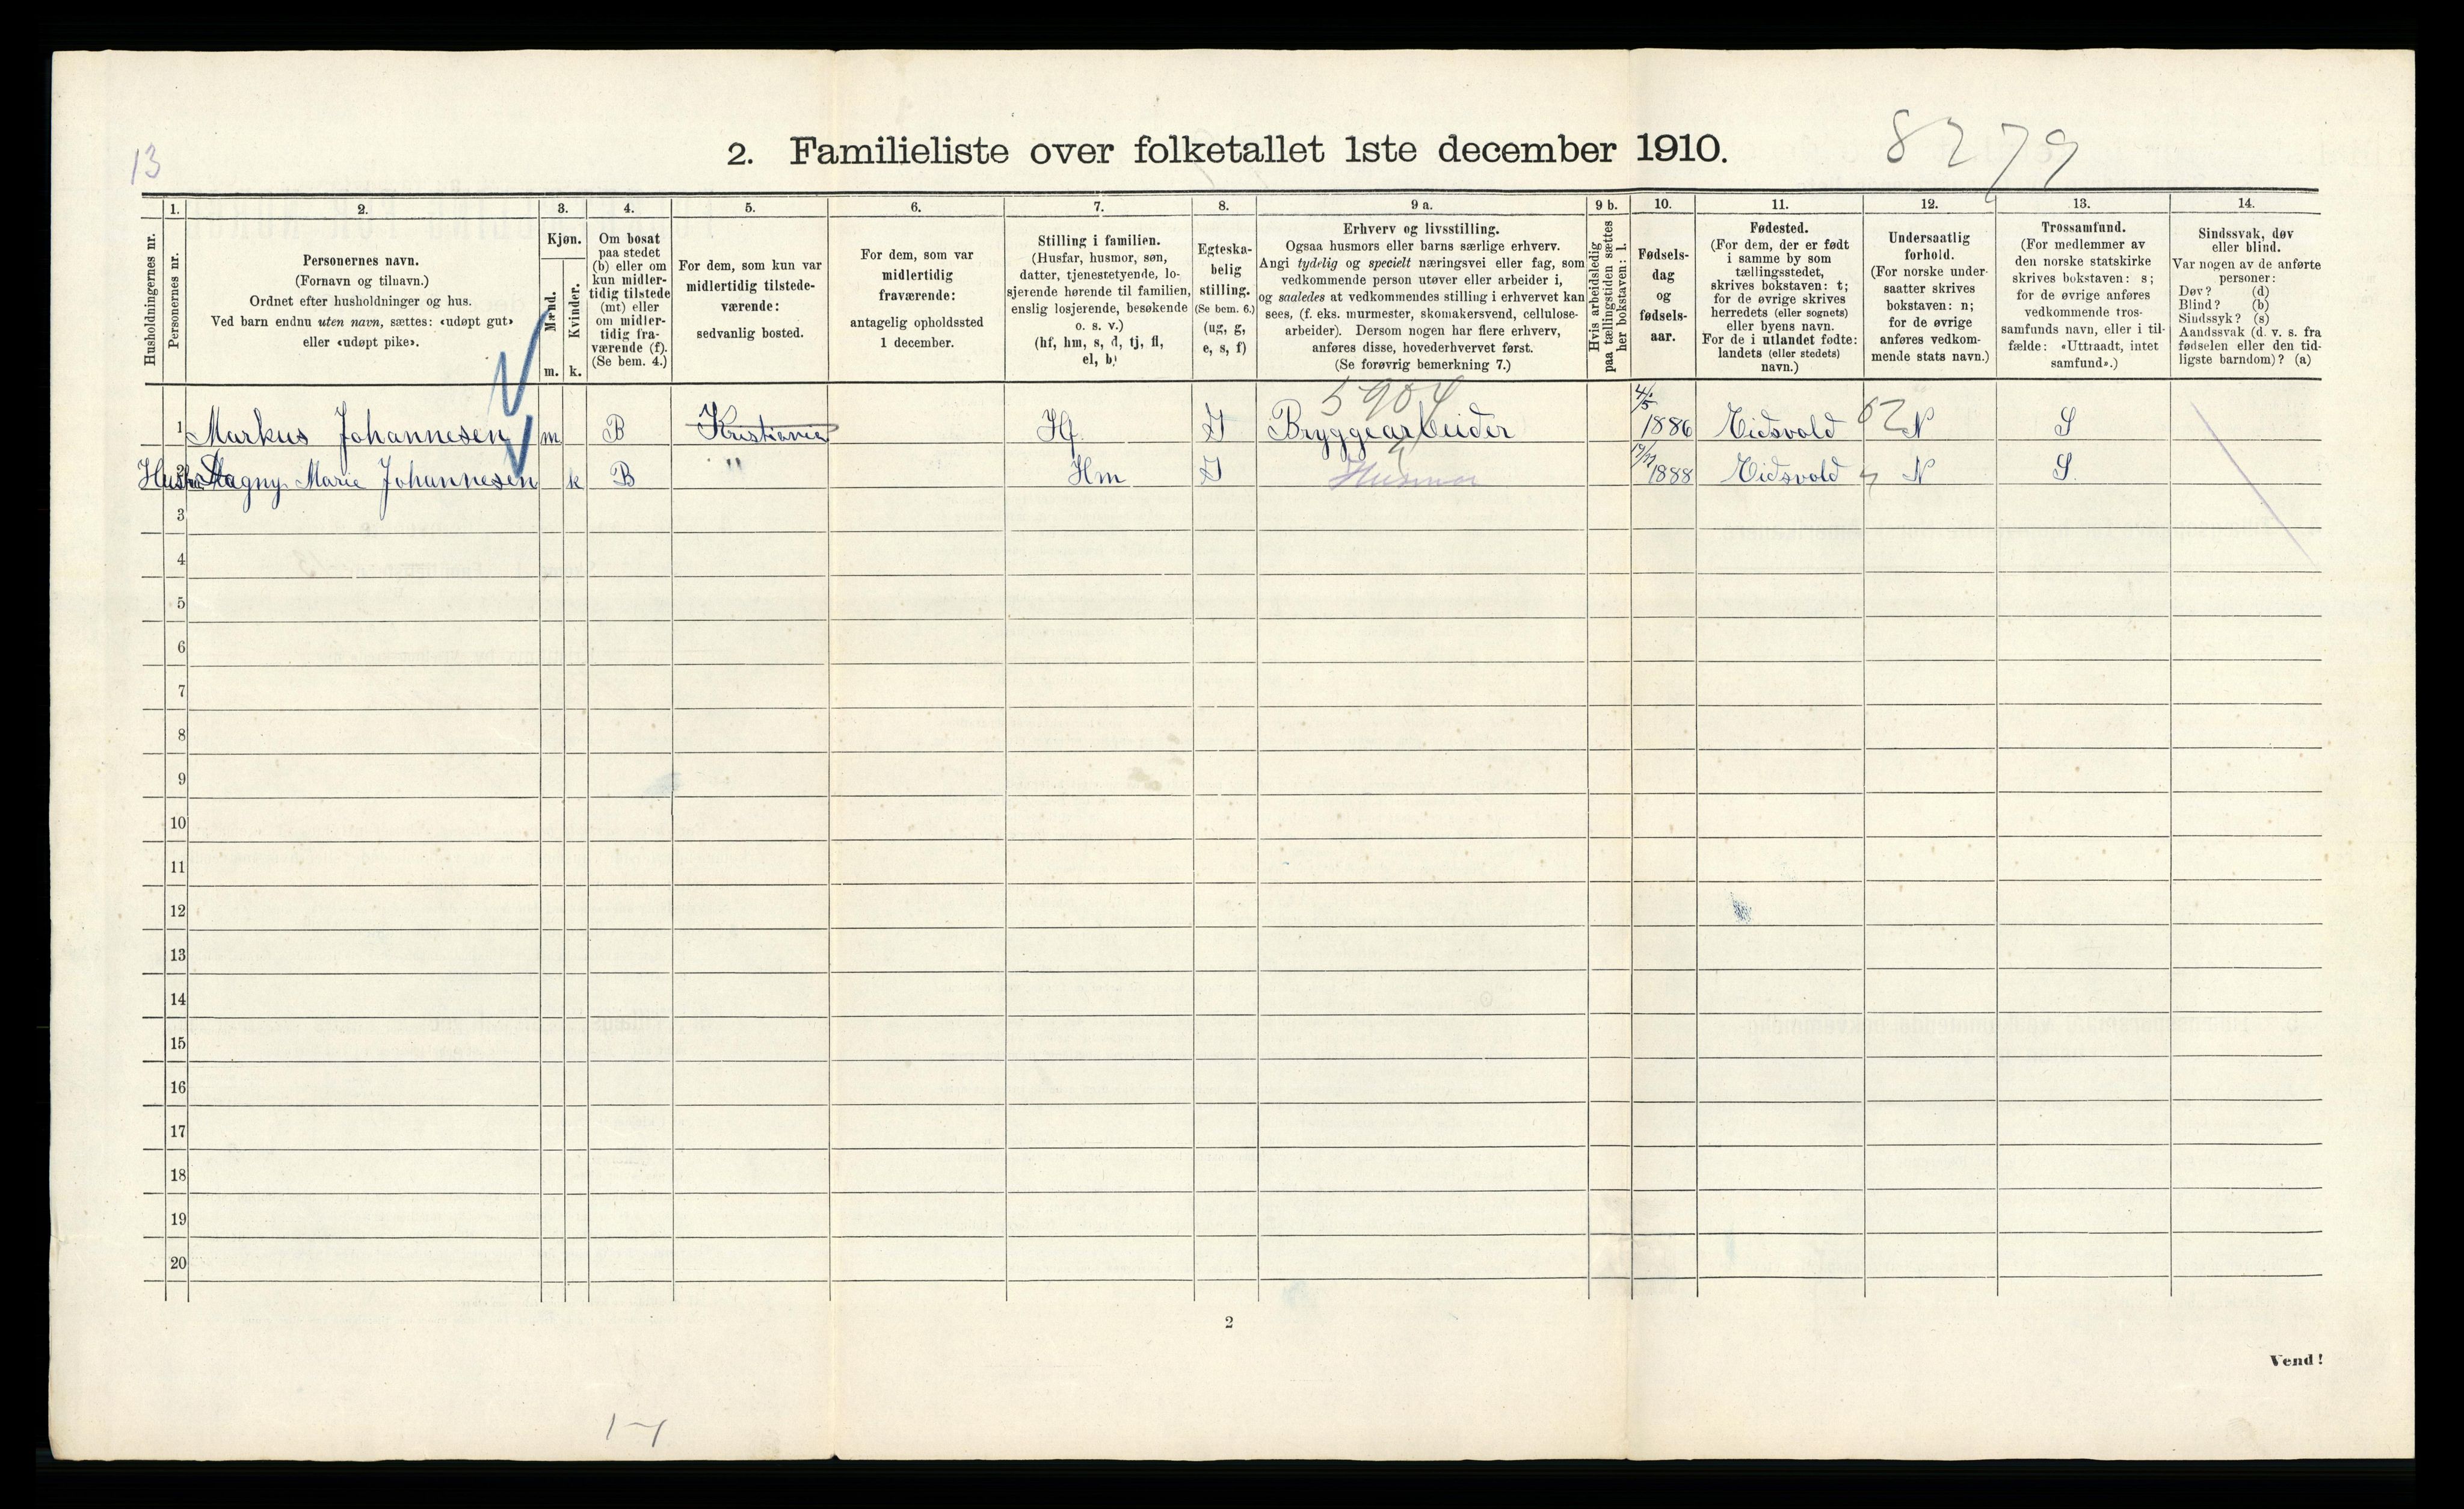 13
2. Familieliste over folketallet 1ste december 1910.
8279
1. 2. 3. 4. 5. 6. 7. 8. 9 a. 9 b. 10. 11. 12. 13. 14.
Husholdningernes nr.
Personernes nr.
Personernes navn.
(Fornavn og tilnavn.)
Ordnet efter husholdninger og hus.
Ved barn endnu uten navn, sættes: «udøpt gut»
eller «udøpt pike».
Kjøn.
Mænd.
m.
Kvinder.
k.
Om bosat
paa stedet
(b) eller om
kun midler-
tidig tilstede
(mt) eller
om midler-
tidig fra-
værende (f).
(Se bem. 4.)
For dem, som kun var
midlertidig tilstede-
værende:
sedvanlig bosted.
For dem, som var
midlertidig
fraværende:
antagelig opholdssted
1 december.
Stilling i familien.
(Husfar, husmor, søn,
datter, tjenestetyende, lo-
sjerende hørende til familien,
enslig losjerende, besøkende
o. s. v.)
(hf, hm, s, d, tj, fl,
el, b)
Egteska-
belig
stilling.
(Se bem. 6.)
(ug, g,
e, s, f)
Erhverv og livsstilling.
Ogsaa husmors eller barns særlige erhverv.
Angi tydelig og specielt næringsvei eller fag, som
vedkommende person utøver eller arbeider i,
og saaledes at vedkommendes stilling i erhvervet kan
sees, (f. eks. murmester, skomakersvend, cellulose-
arbeider). Dersom nogen har flere erhverv,
anføres disse, hovederhvervet først.
(Se forøvrig bemerkning 7.)
Hvis arbeidsledig
paa tællingstiden sættes
her bokstaven: l.
Fødsels-
dag
og
fødsels-
aar.
Fødested.
(For dem, der er født
i samme by som
tællingsstedet,
skrives bokstaven: t;
for de øvrige skrives
herredets (eller sognets)
eller byens navn.
For de i utlandet fødte:
landets (eller stedets)
navn.)
Undersaatlig
forhold.
(For norske under-
saatter skrives
bokstaven: n;
for de øvrige
anføres vedkom-
mende stats navn.)
Trossamfund.
(For medlemmer av
den norske statskirke
skrives bokstaven: s;
for de øvrige anføres
vedkommende tros-
samfunds navn, eller i til-
fælde: «Uttraadt, intet
samfund».)
Sindssvak, døv
eller blind.
Var nogen av de anførte
personer:
Døv? (d)
Blind? (b)
Sindssyk? (s)
Aandssvak (d. v. s. fra
fødselen eller den tid-
ligste barndom)? (a)
5904
1 Markus Johannesen m B Kristiania Hf. G Bryggearbeider 4/5 1886 Eidsvold 62 N S
2 Magny Marie Johannesen k B " Hm G Husmor 1888 Eidsvold N S.
3
4
5
6
7
8
9
10
11
12
13
14
15
16
17
18
19
20
2
Vend!